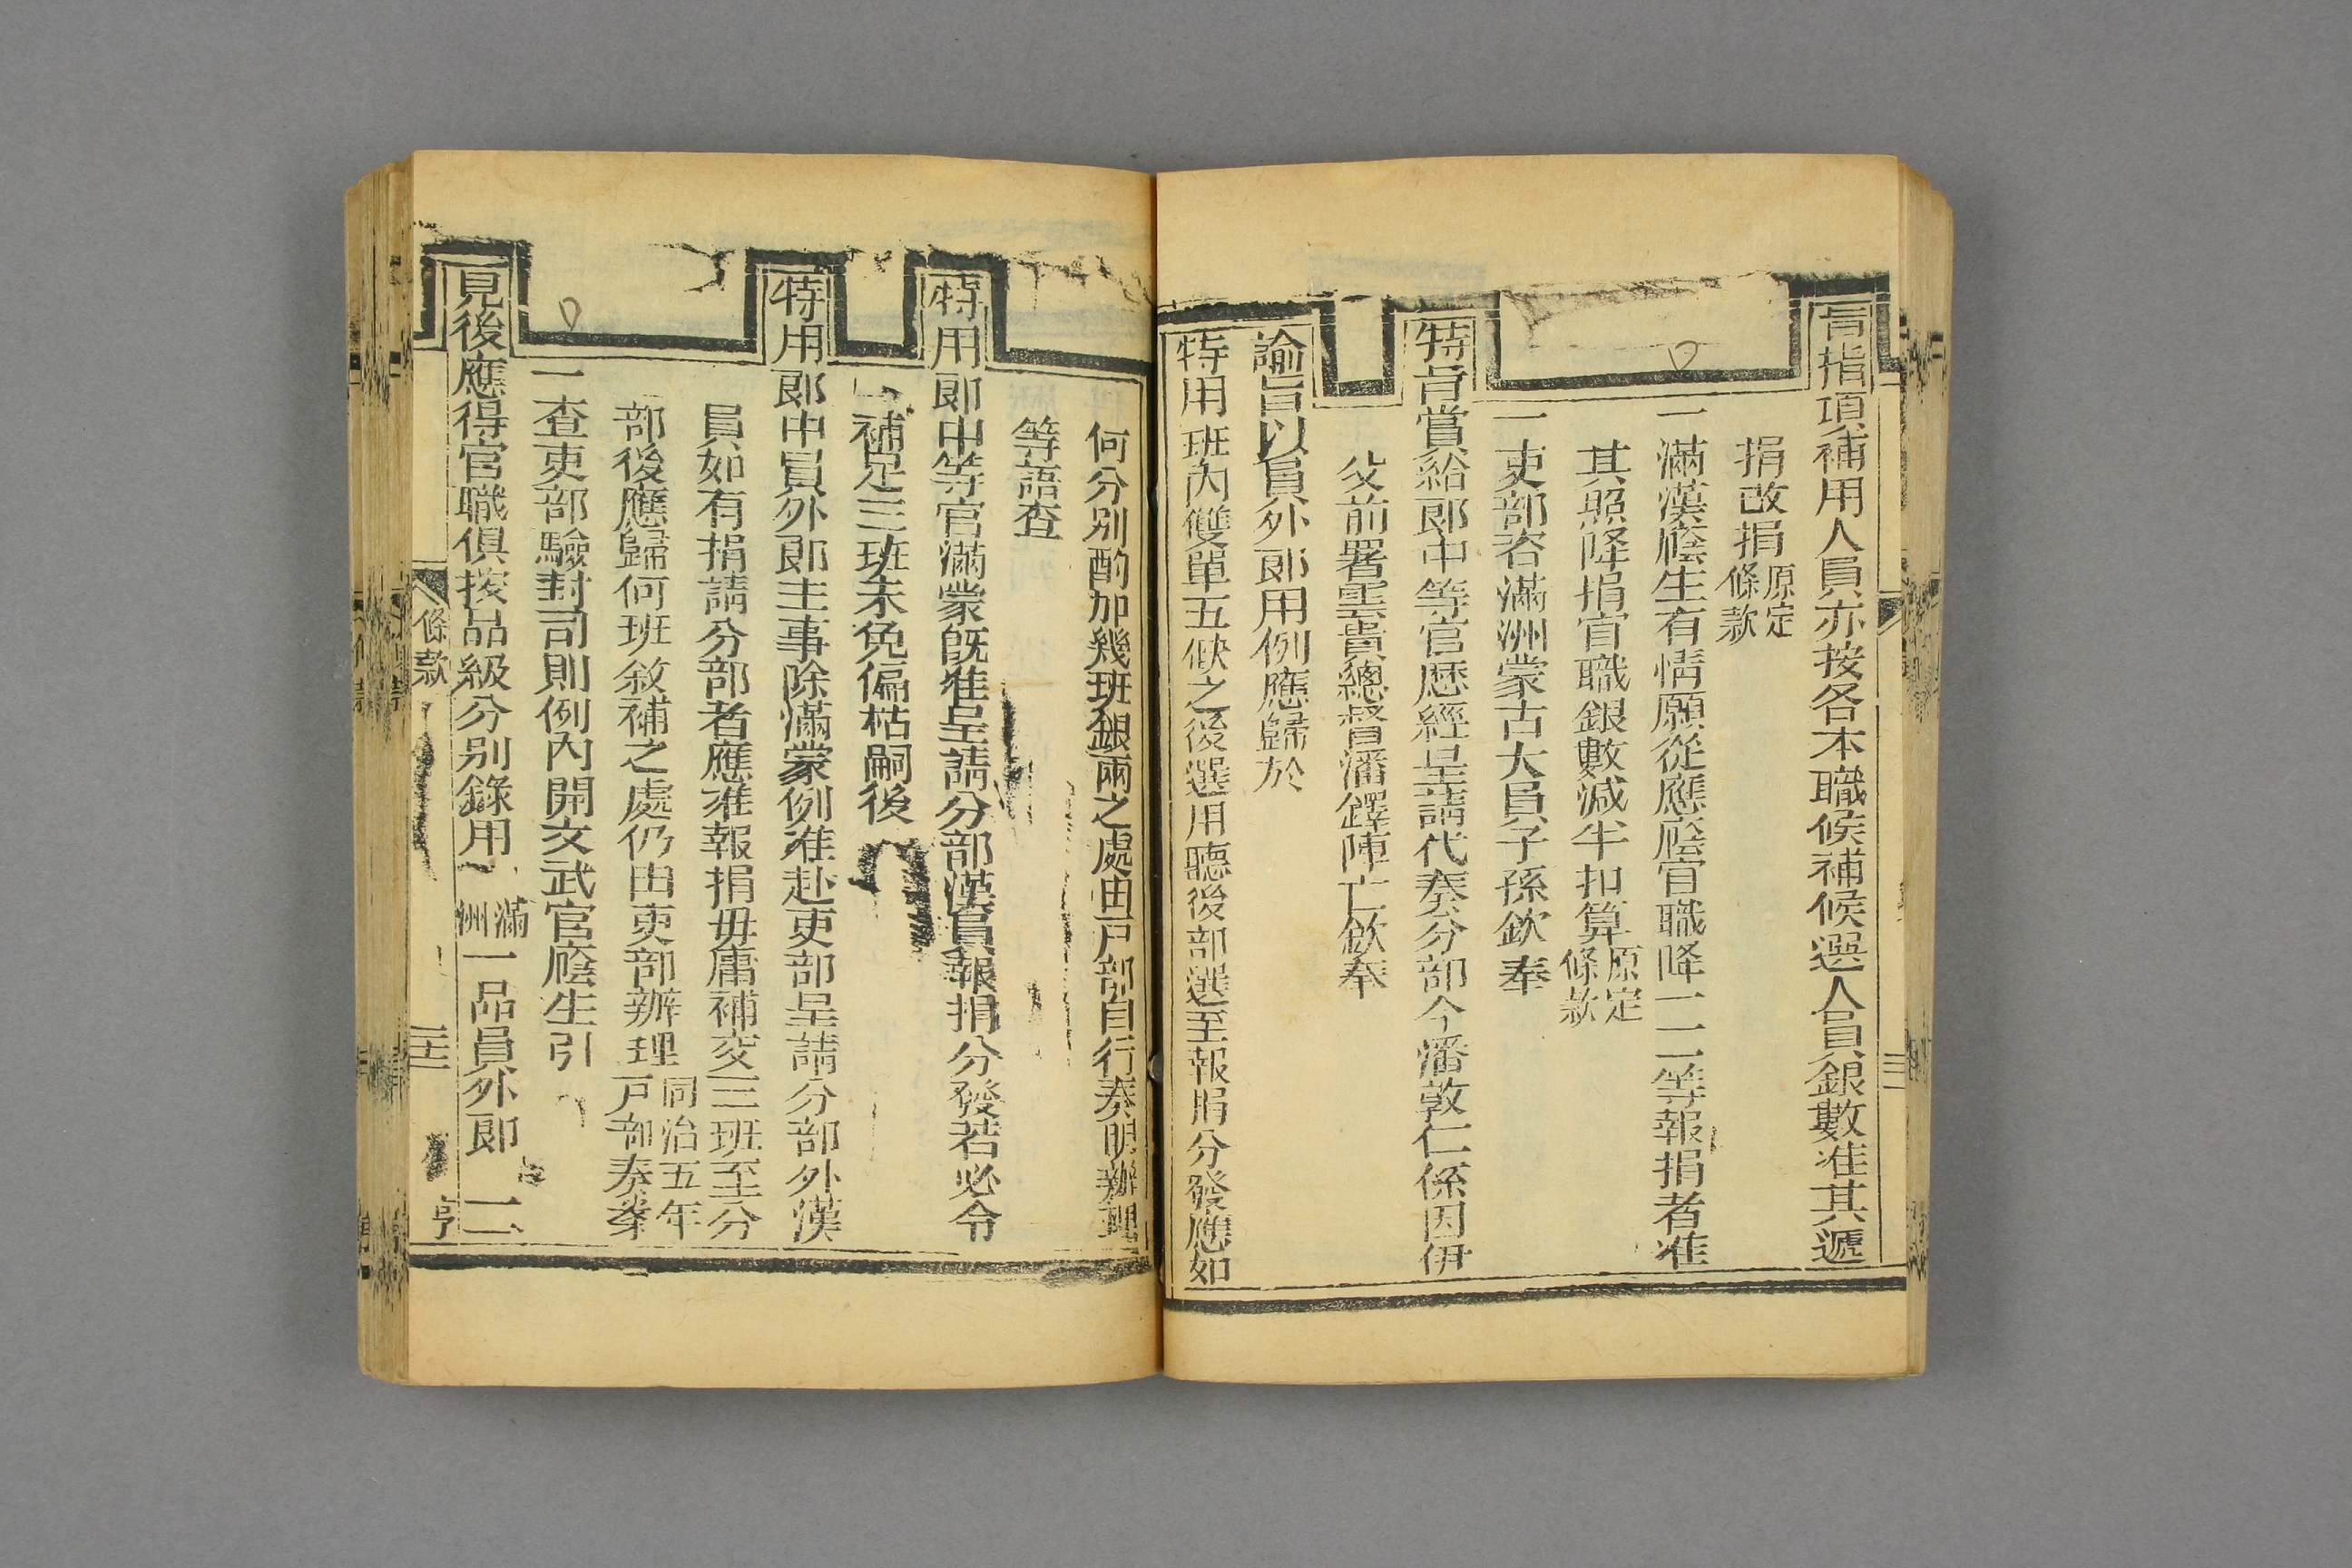 旨指項補用人員亦按各本職候補候選人員銀數准其遞
捐改捐原定條款
一滿漢廕生有情願從應廕官職降一二等報捐者准
其照降捐官職銀數減半扣算原定條款
一吏部咨滿洲蒙古大員子孫欽奉
特旨賞給郎中等官歷經呈請代奏分部今潘敦仁係因伊
父前署雲貴總督潘鐸陣亡欽奉
諭旨以員外郎用例應歸於
特用班內雙單五缺之後選用聽後部選至報捐分發應如
何分別酌加幾班銀兩之處由戶部自行奏明辦理
等語查
特用郎中等官滿蒙旣准呈請分部漢員報捐分發若必令
補足三班未免偏枯嗣後
特用郎中員外郎主事除滿蒙例准赴吏部呈請分部外漢
員如有捐請分部者應准報捐毋庸補交三班至分
部後應歸何班敘補之處仍由吏部辦理同治五年戶部奏案
一查吏部驗封司則例內開文武官廕生引
見後應得官職俱按品級分別錄用 滿洲一品員外郎 二
條款
亨